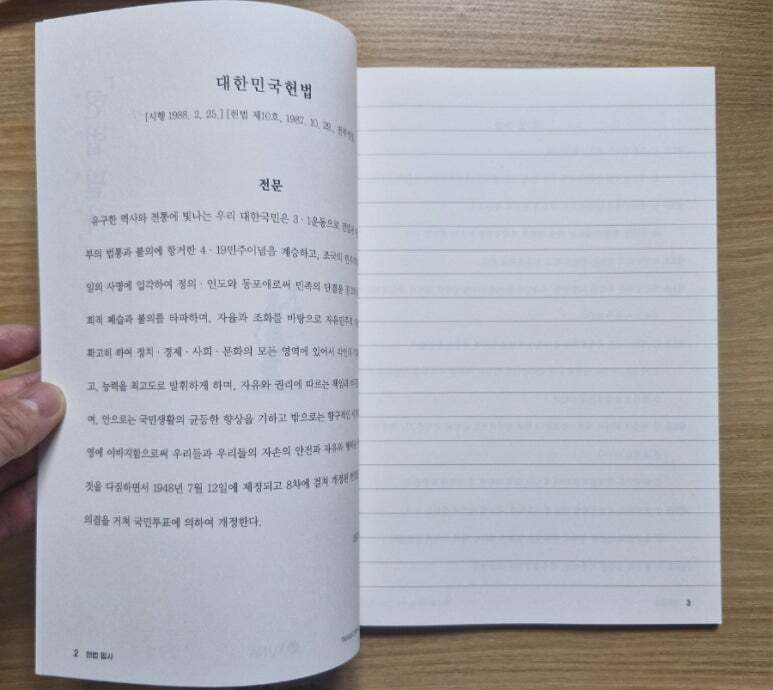 대한민국헌법
[시행 1988. 2. 25.] [헌법 제10호, 1987. 10. 29.,
전문
유구한 역사와 전통에 빛나는 우리 대한국민은 3·1운동으로
부의 법통과 불의에 항거한 4·19민주이념을 계승하고, 조국의
일의 사명에 입각하여 정의·인도와 동포애로써 민족의 단결을
회적 폐습과 불의를 타파하며, 자율과 조화를 바탕으로
확고히 하여 정치·경제·사회·문화의 모든 영역에 있어서 각인의
고, 능력을 최고도로 발휘하게 하며, 자유와 권리에 따르는 책임과
며, 안으로는 국민생활의 균등한 향상을 기하고 밖으로는 항구적인
영에 이바지함으로써 우리들과 우리들의 자손의 안전과 자유와
것을 다짐하면서 1948년 7월 12일에 제정되고 8차에 걸쳐 개정된
의결을 거쳐 국민투표에 의하여 개정한다.
2 헌법 필사
3